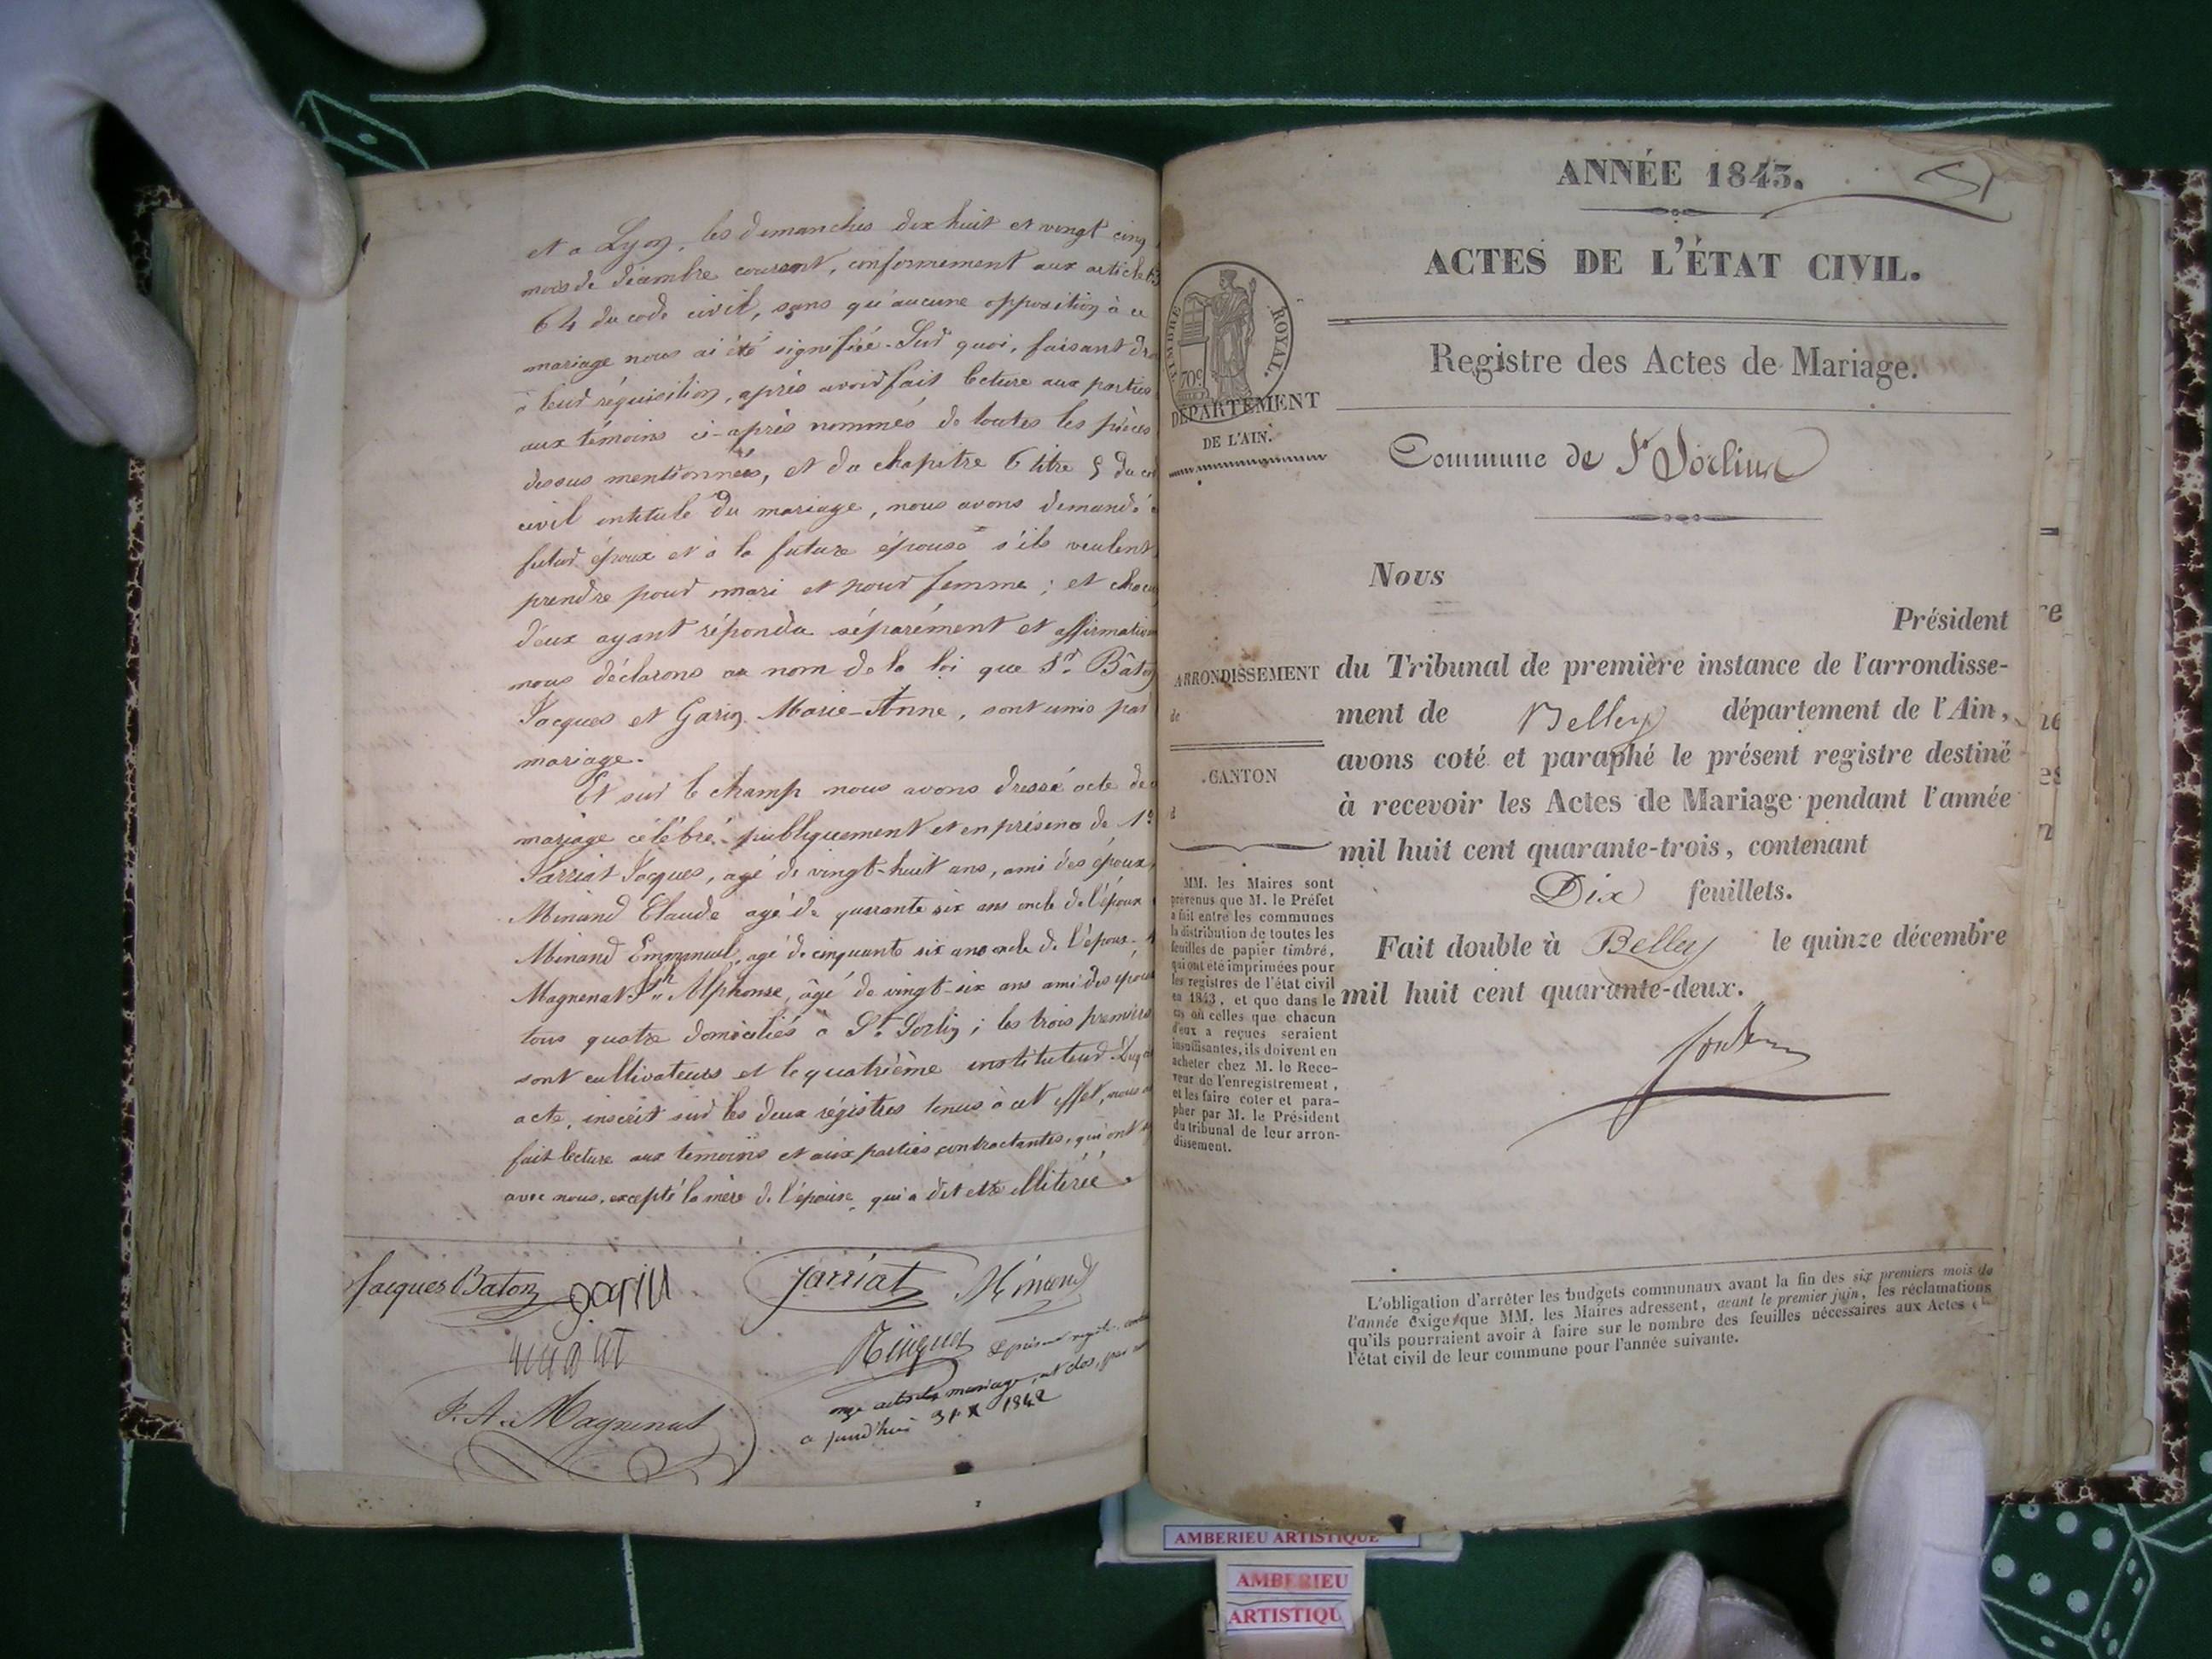 et a Lyon, les dimanches dix huit et vingt cinq
mois de décembre courent, conformement aux articles 63
64 du code civil, sans qu'aucune opposition à ce
mariage nous ai été signifiée. Sur quoi, faisant dr
à leur réquisition, après avoir fait lecture aux parties
aux témoins ci-après nommés de toutes les pièces
dessus mentionnées, et du chapitre 6 titre 5 du co
civil intitulé Du mariage, nous avons demandé
futur époux et à la future épouse s'ils veulent
prendre pour mari et pour femme ; et chacun
d'eux ayant répondu séparément et affirmativ
nous déclarons au nom de la loi que Sr. Bâton
Jacques et Garin Marie-Anne, sont unis par
mariage.
Et sur le champ nous avons dressé acte de
mariage célébré publiquement et en présence de 1º
Jarriat Jacques, agé de vingt-huit ans, ami des époux,
Minand Claude agé de quarante six ans oncle de l'époux
Minand Emmanuel, agé de cinquante six ans oncle de l'épou
Magnenat Alphonse, âgé de vingt-six ans ami des époux
tous quatre domiciliés à St. Sorlin ; les trois premiers
sont cultivateurs et le quatrième instituteur. Duq
acte, inscrit sur les deux régistres tenus à cet effet, nous
fait lecture aux temoins et aux parties contractantes, qui ont
avec nous, excepté la mère de l'épouse, qui a dit etre illitérée.
Jacques Baton garin Jarriat Minand
J. A. Magnenat
onze actes de mariage, est clos, par
a jourd'hui 31 X 1842
ANNÉE 1843.
ACTES DE L'ÉTAT CIVIL.
Registre des Actes de Mariage.
TIMBRE ROYAL.
70c
DÉPARTEMENT
DE L'AIN.
Commune de St Sorlin
Nous
Président
ARRONDISSEMENT
de
CANTON
d
du Tribunal de première instance de l'arrondisse-
ment de Belley département de l'Ain,
avons coté et paraphé le présent registre destiné
à recevoir les Actes de Mariage pendant l'année
mil huit cent quarante-trois, contenant
Dix feuillets.
Fait double à Belley le quinze décembre
mil huit cent quarante-deux.
MM. les Maires sont
prévenus que M. le Préfet
a fait entre les communes
la distribution de toutes les
feuilles de papier timbré,
qui ont été imprimées pour
les registres de l'état civil
en 1843, et que dans le
cas où celles que chacun
d'eux a reçues seraient
insuffisantes, ils doivent en
acheter chez M. le Rece-
veur de l'enregistrement,
et les faire coter et para-
pher par M. le Président
du tribunal de leur arron-
dissement.
L'obligation d'arrêter les budgets communaux avant la fin des six premiers mois de
l'année exige que MM. les Maires adressent, avant le premier juin, les réclamations
qu'ils pourraient avoir à faire sur le nombre des feuilles nécessaires aux Actes de
l'état civil de leur commune pour l'année suivante.
AMBERIEU ARTISTIQUE
AMBERIEU
ARTISTIQU